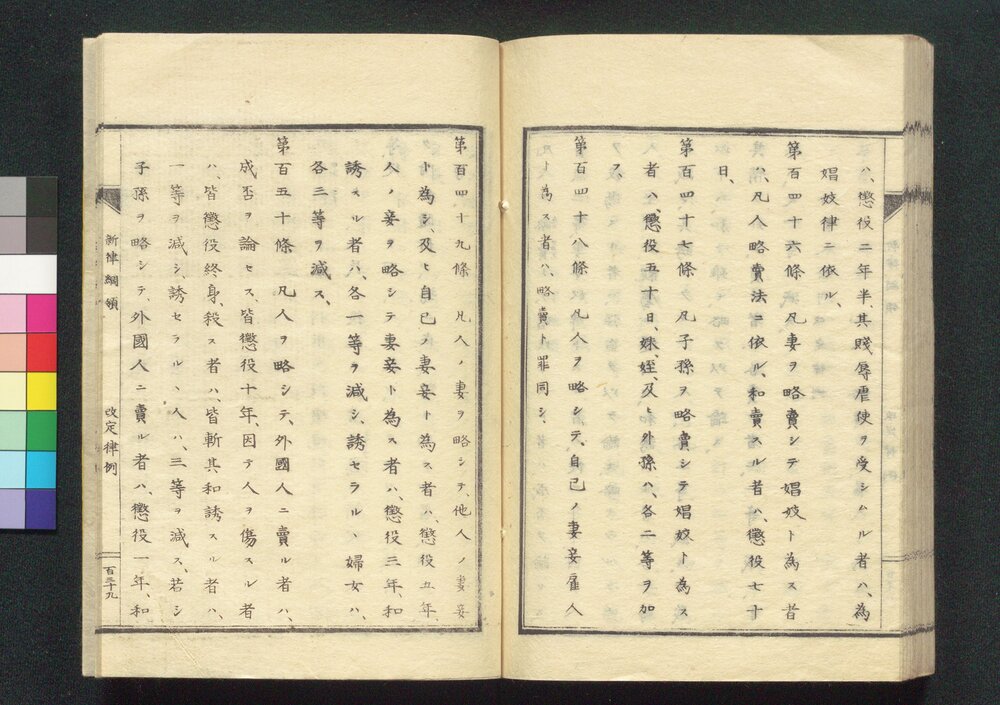 ハ、懲役二年半、其賤辱虐使ヲ受シムル者ハ、為
娼妓律ニ依ル、
第百四十六條凡妻ヲ略賣シテ娼妓ト為ス者
ハ、凡人略賣法ニ依ル、和賣スル者ハ、懲役七十
日、
第百四十七條凡子孫ヲ略賣シテ娼妓ト為ス
者ハ、懲役五十日、妹、姪、及ヒ外孫ハ、各二等ヲ加
フ、
第百四十八條凡人ヲ略シテ、自己ノ妻妾雇人
ト為ス者ハ、略賣ト罪同シ、
第百四十九條凡人ノ妻ヲ略シテ、他人ノ妻妾
ト為シ、及ヒ自己ノ妻妾ト為ス者ハ、懲役五年、
人ノ妾ヲ略シテ妻妾ト為ス者ハ、懲役三年、和
誘スル者ハ、各一等ヲ減シ、誘セラルヽ婦女ハ、
各三等ヲ減ス、
第百五十條凡人ヲ略シテ、外國人ニ賣ル者ハ、
成否ヲ論セス、皆懲役十年、因テ人ヲ傷スル者
ハ、皆懲役終身、殺ス者ハ、皆斬其和誘スル者ハ、
一等ヲ減シ、誘セラルヽ人ハ、三等ヲ減ス、若シ
子孫ヲ略シテ、外國人ニ賣ル者ハ、懲役一年、和
新律綱領 改定律例 百三十九